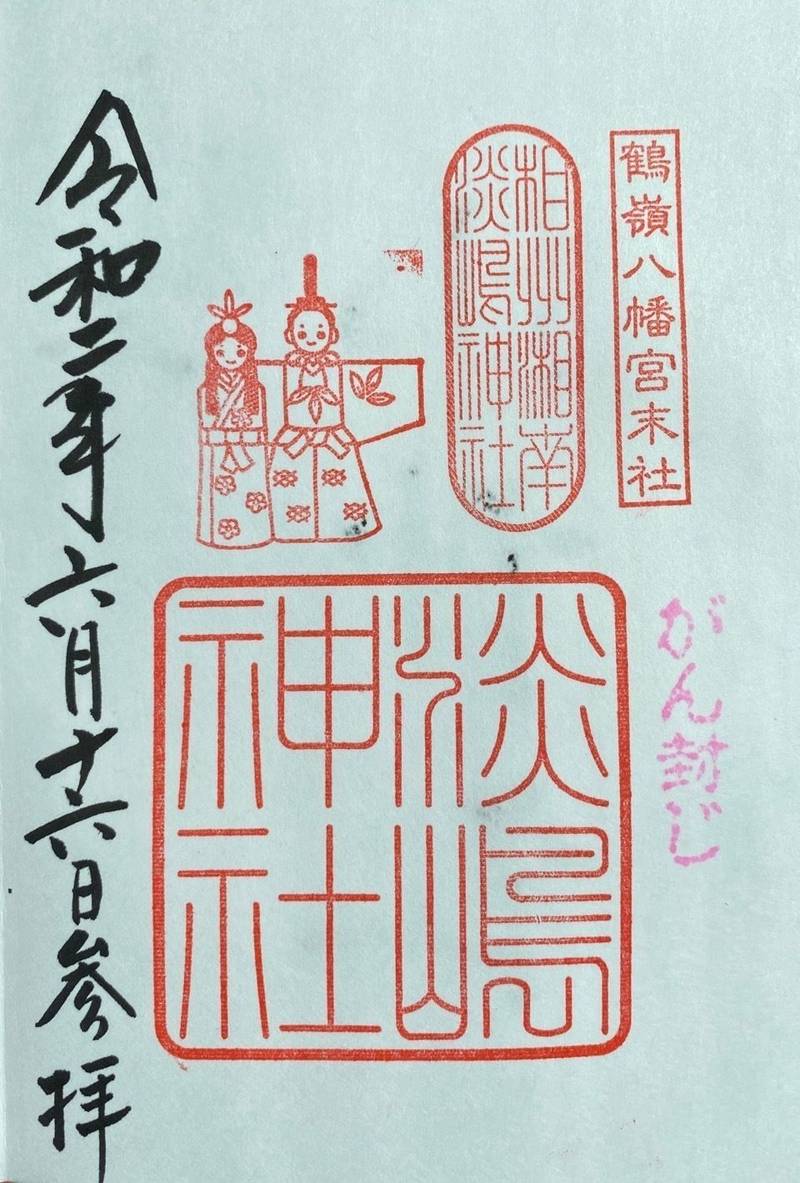 鶴嶺八幡宮末社
相州湘南
淡嶋神社
がん封じ
淡嶋
神社
令和二年六月十六日参拝